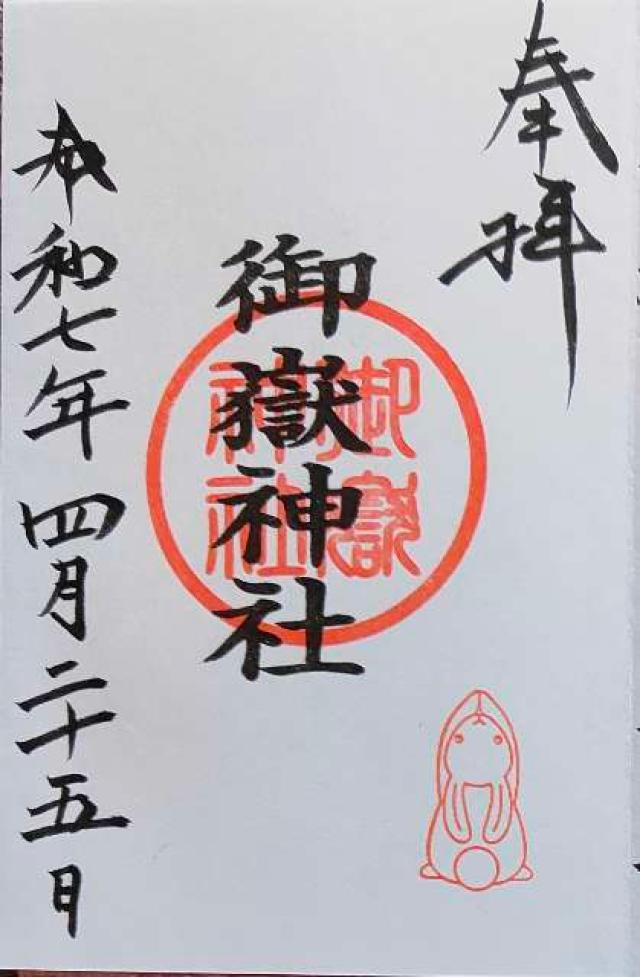 奉拝
御嶽神社
御嶽
神社
令和七年四月二十五日